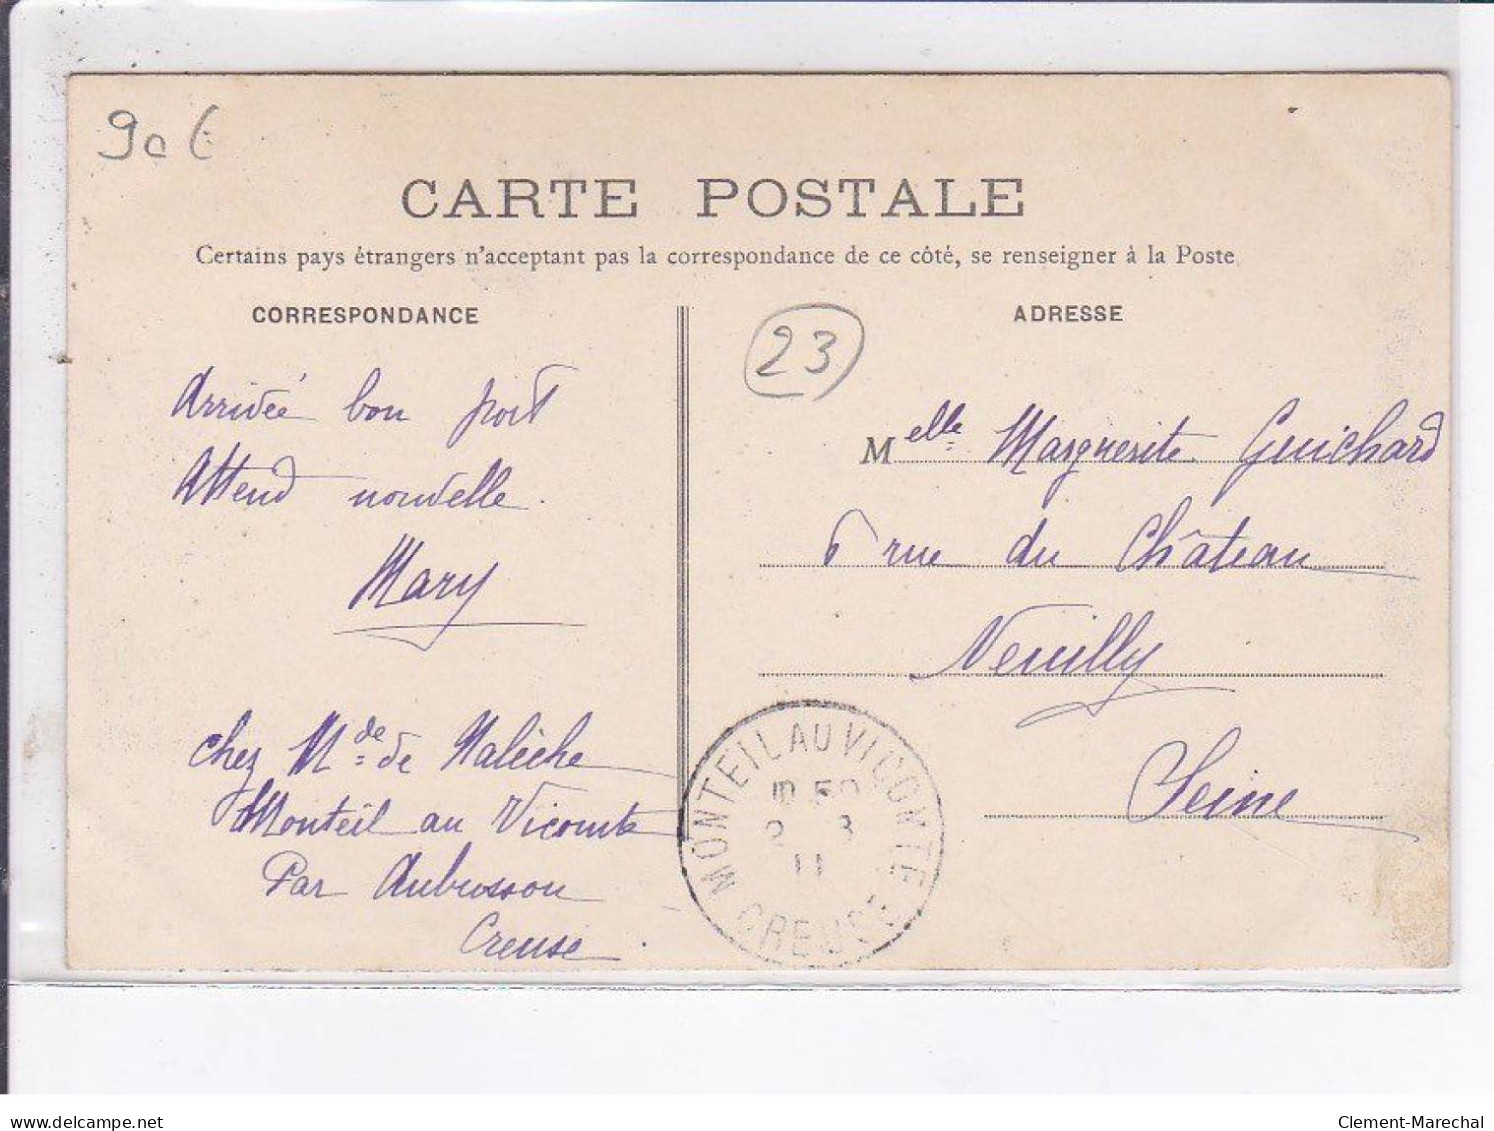 90 €
CARTE POSTALE
Certains pays étrangers n'acceptant pas la correspondance de ce côté, se renseigner à la Poste
CORRESPONDANCE
ADRESSE
23
Arrivée bon port
Attend nouvelle.
Mary
chez Mde de Malèche
Monteil au Vicomte
Par Aubusson
Creuse
Melle Marguerite Guichard
6 rue du Château
Neuilly
Seine
MONTEIL AU VICOMTE
11
CREUSE
delcampe.net
Clement-Marechal